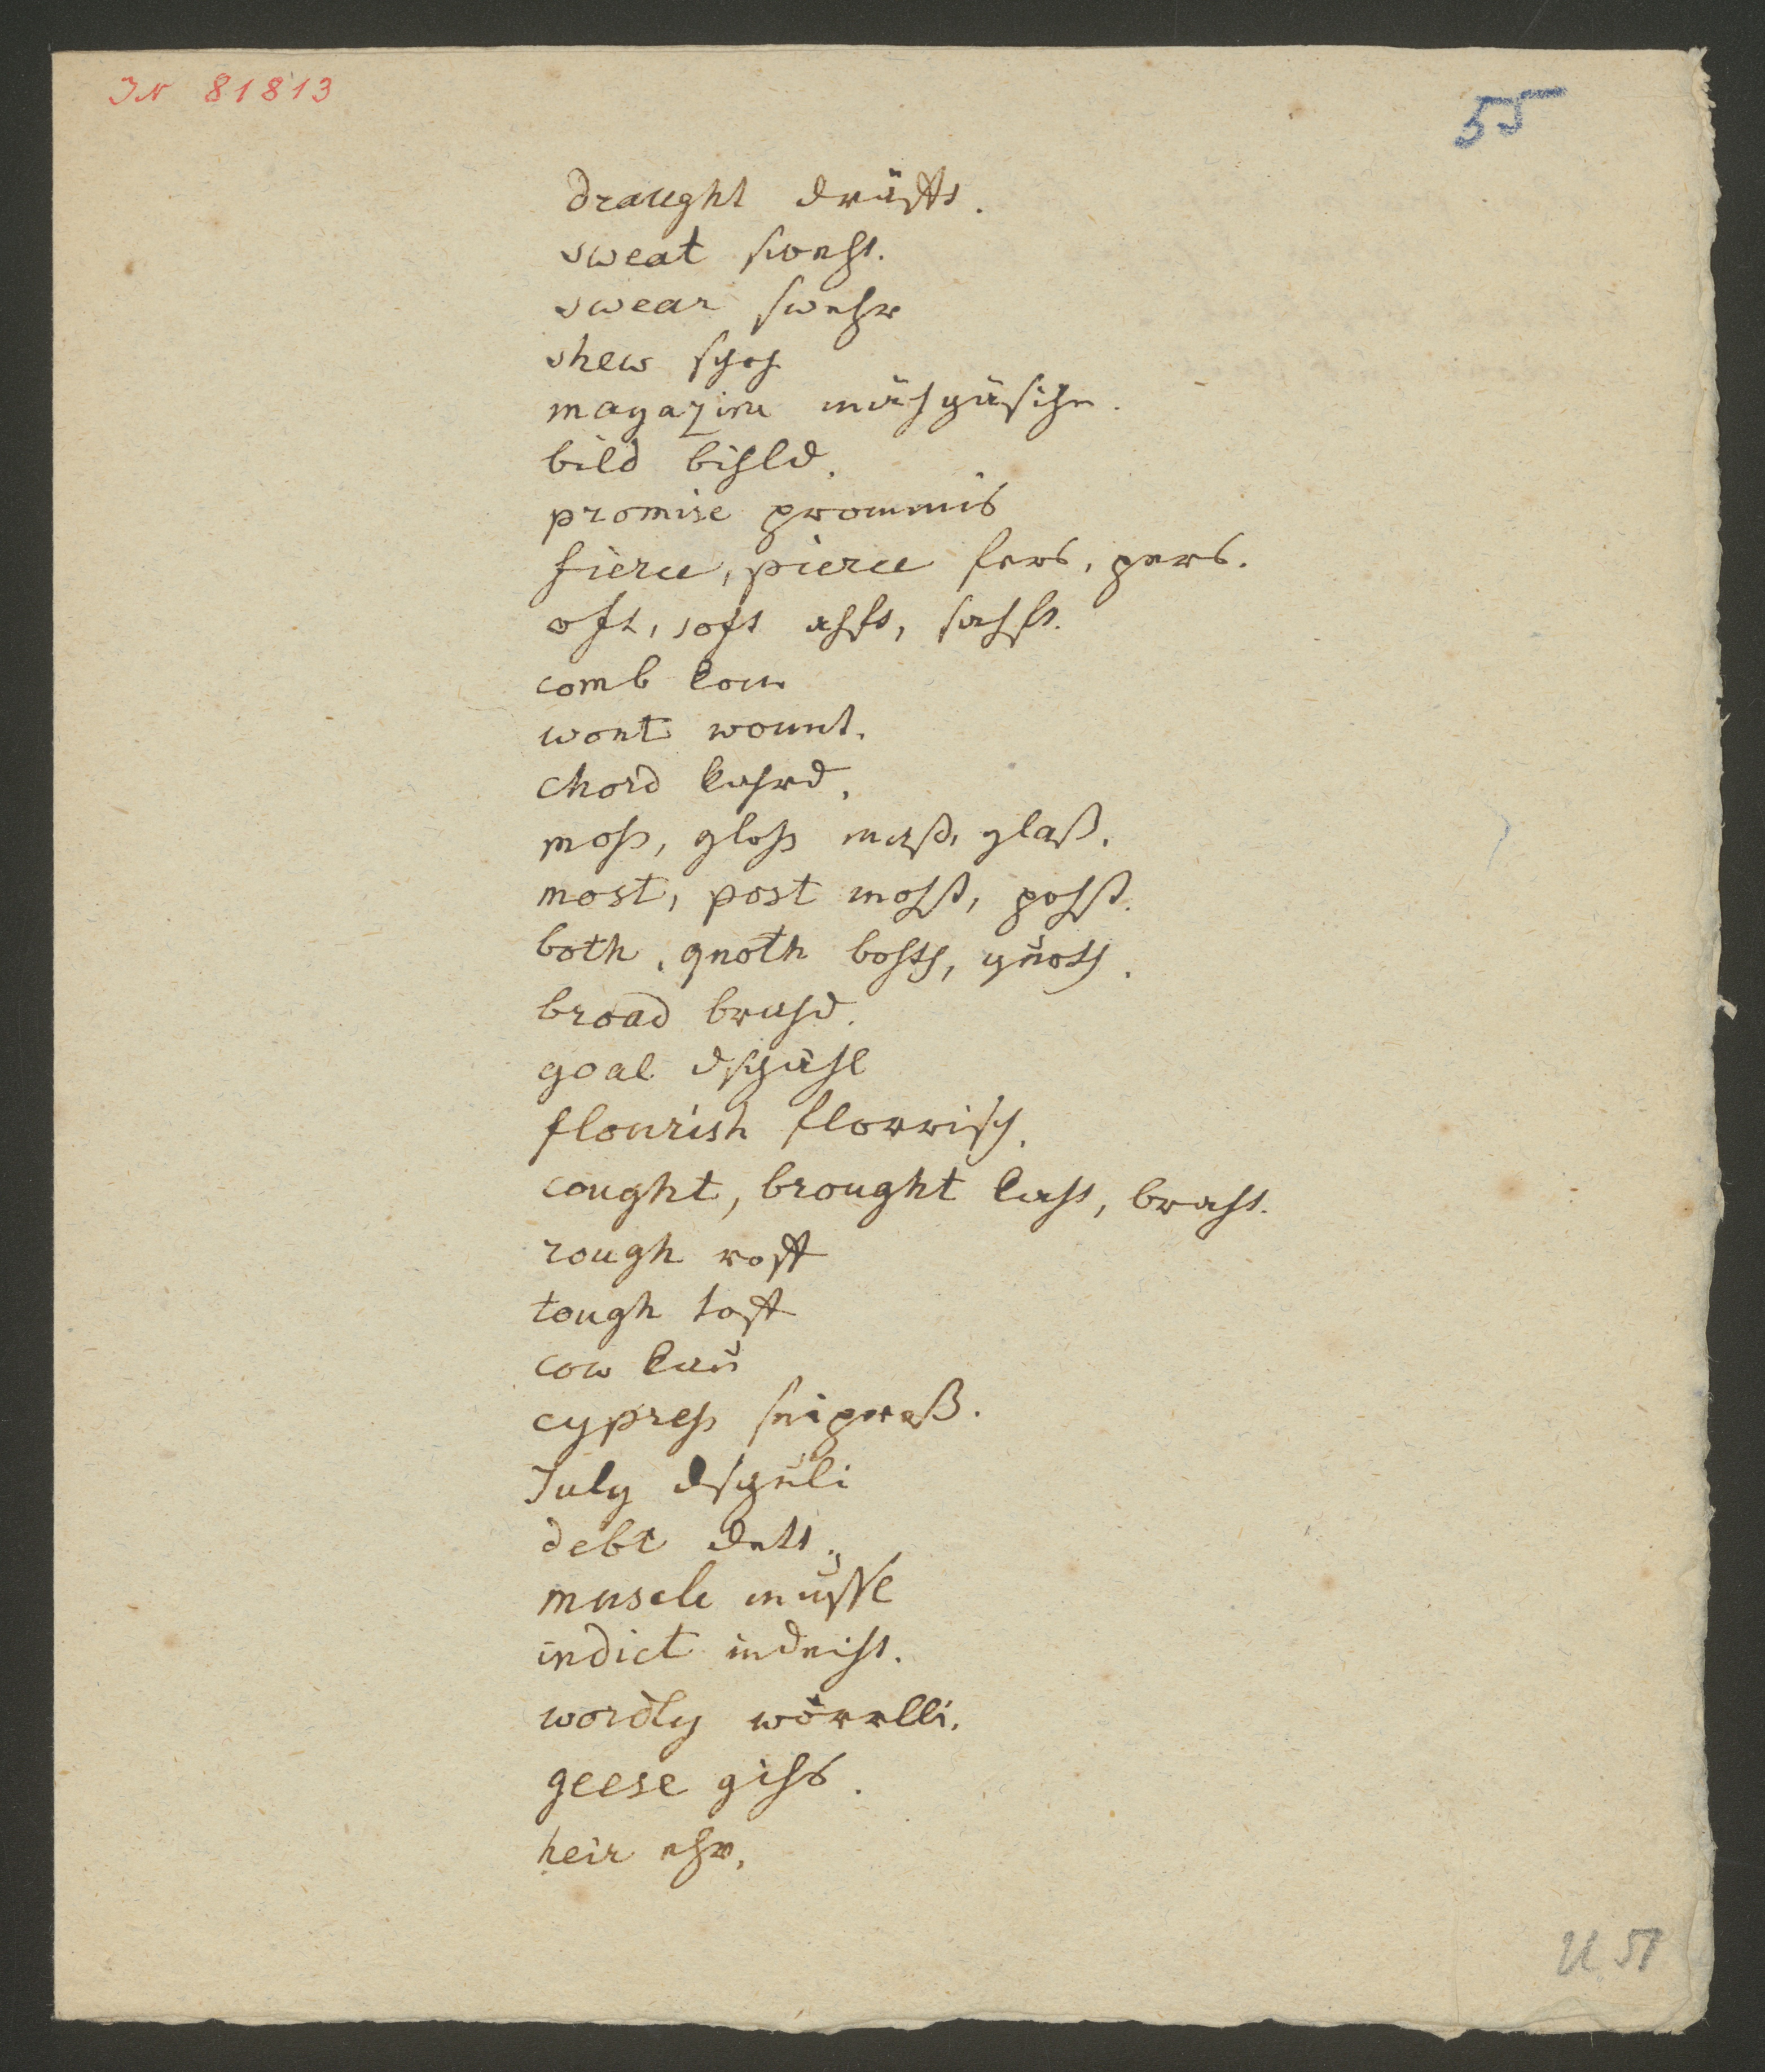 IN 81813
55
draught dräfft.
sweat sweht.
swear swehr
shew schoh
magazine mähgäsihn.
bild bihld.
promise prommis
fierce, pierce fers, pers.
oft, soft ahft, sahft.
comb kom
wont wount.
chord kahrd.
moss, gloss maß, glaß.
most, post mohst, pohst.
both, quoth bohth, quoth.
broad brahd.
goal dschähl
flourish florrisch.
cought, brought kaht, braht.
rough roff
tough toff
cow kau
cypress seipreß.
July dschuli
debt dett.
muscle mussl
indict indeiht.
wordly wörrlli.
geese gihs.
heir ehr.